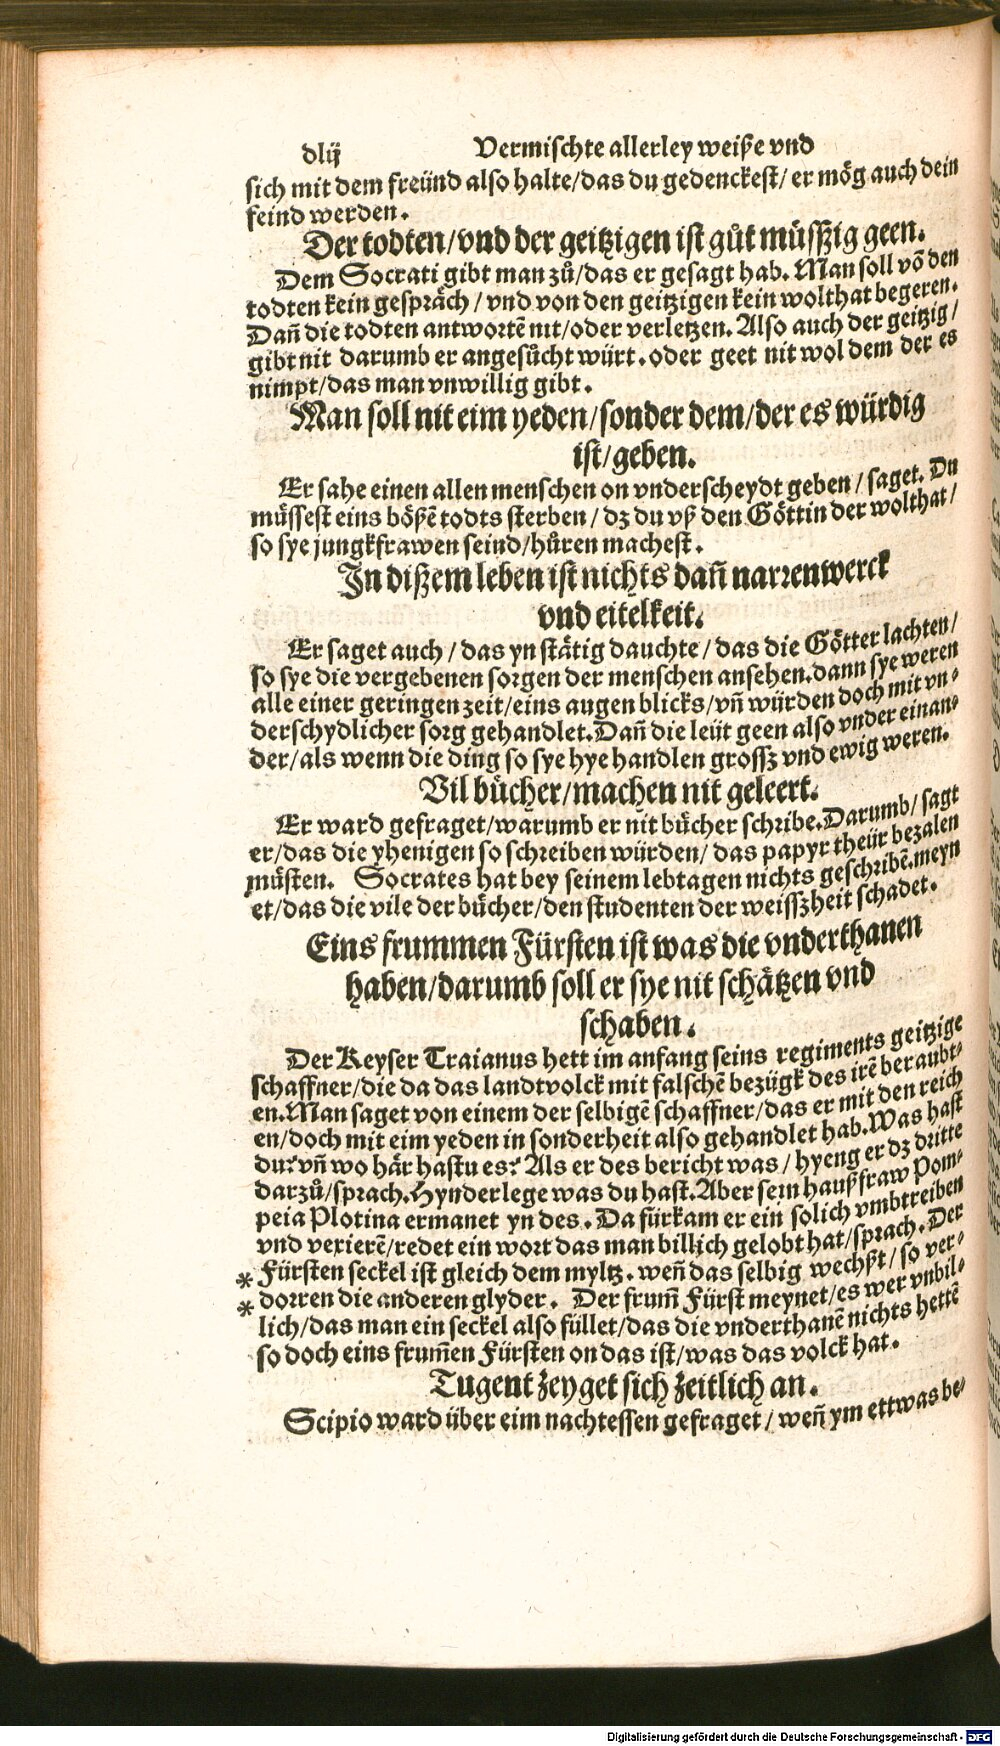 dlij Vermischte allerley weiße vnd
sich mit dem freünd also halte/das du gedenckest/ er mög auch dein
feind werden.
Der todten/vnd der geitzigen ist gůt müssßig geen.
Dem Socrati gibt man zů/das er gesagt hab. Man soll võ den
todten kein gespräch / vnd von den geitzigen kein wolthat begeren.
Dañ die todten antwortẽ nit/oder verletzen. Also auch der geitzig/
gibt nit darumb er angesůcht würt. oder geet nit wol dem der es
nimpt/das man vnwillig gibt.
Man soll nit eim yeden/sonder dem/der es würdig
ist/geben.
Er sahe einen allen menschen on vnderscheydt geben / saget. Du
müssest eins bößẽ todts sterben / dz du vß den Göttin der wolthat/
so sye jungkfrawen seind/hůren machest.
In dißem leben ist nichts dañ narrenwerck
vnd eitelkeit.
Er saget auch / das yn stätig dauchte / das die Götter lachten/
so sye die vergebenen sorgen der menschen ansehen. dann sye weren
alle einer geringen zeit/eins augen blicks/vñ würden doch mit vn⸗
derschydlicher sorg gehandlet. Dañ die leüt geen also vnder einan⸗
der/als wenn die ding so sye hye handlen grossz vnd ewig weren.
Vil bücher/machen nit geleert.
Er ward gefraget/warumb er nit bücher schribe. Darumb/ sagt
er/das die yhenigen so schreiben würden/ das papyr theür bezalen
müsten. Socrates hat bey seinem lebtagen nichts geschribẽ. meyn
et/das die vile der bücher/den studenten der weissz­heit schadet.
Eins frummen Fürsten ist was die vnderthanen
haben/darumb soll er sye nit schätzen vnd
schaben.
Der Keyser Traianus hett im anfang seins regiments geitzige
schaffner/die da das landtvolck mit falschẽ bezügk des irẽ beraubt⸗
en. Man saget von einem der selbigẽ schaffner/das er mit den reich
en/doch mit eim yeden in sonderheit also gehandlet hab. Was hast
du? vñ wo här hastu es? Als er des bericht was / hyeng er dz dritte
darzů/sprach. Hynder lege was du hast. Aber sein haußfraw Pom⸗
peia Plotina ermanet yn des. Da fürkam er ein solich vmbtreiben
vnd vexierẽ/redet ein wort das man billich gelobt hat/sprach. Der
* Fürsten seckel ist gleich dem myltz. weñ das selbig wechßt/ so ver⸗
* dorren die anderen glyder. Der frum̃ Fürst meynet/es wer vnbil⸗
lich/das man ein seckel also füllet/das die vnderthanẽ nichts hettẽ
so doch eins frum̃en Fürsten on das ist/was das volck hat.
Tugent zeyget sich zeitlich an.
Scipio ward über eim nachtessen gefraget / weñ ym ettwas be⸗
Digitalisierung gefördert durch die Deutsche Forschungsgemeinschaft - DFG